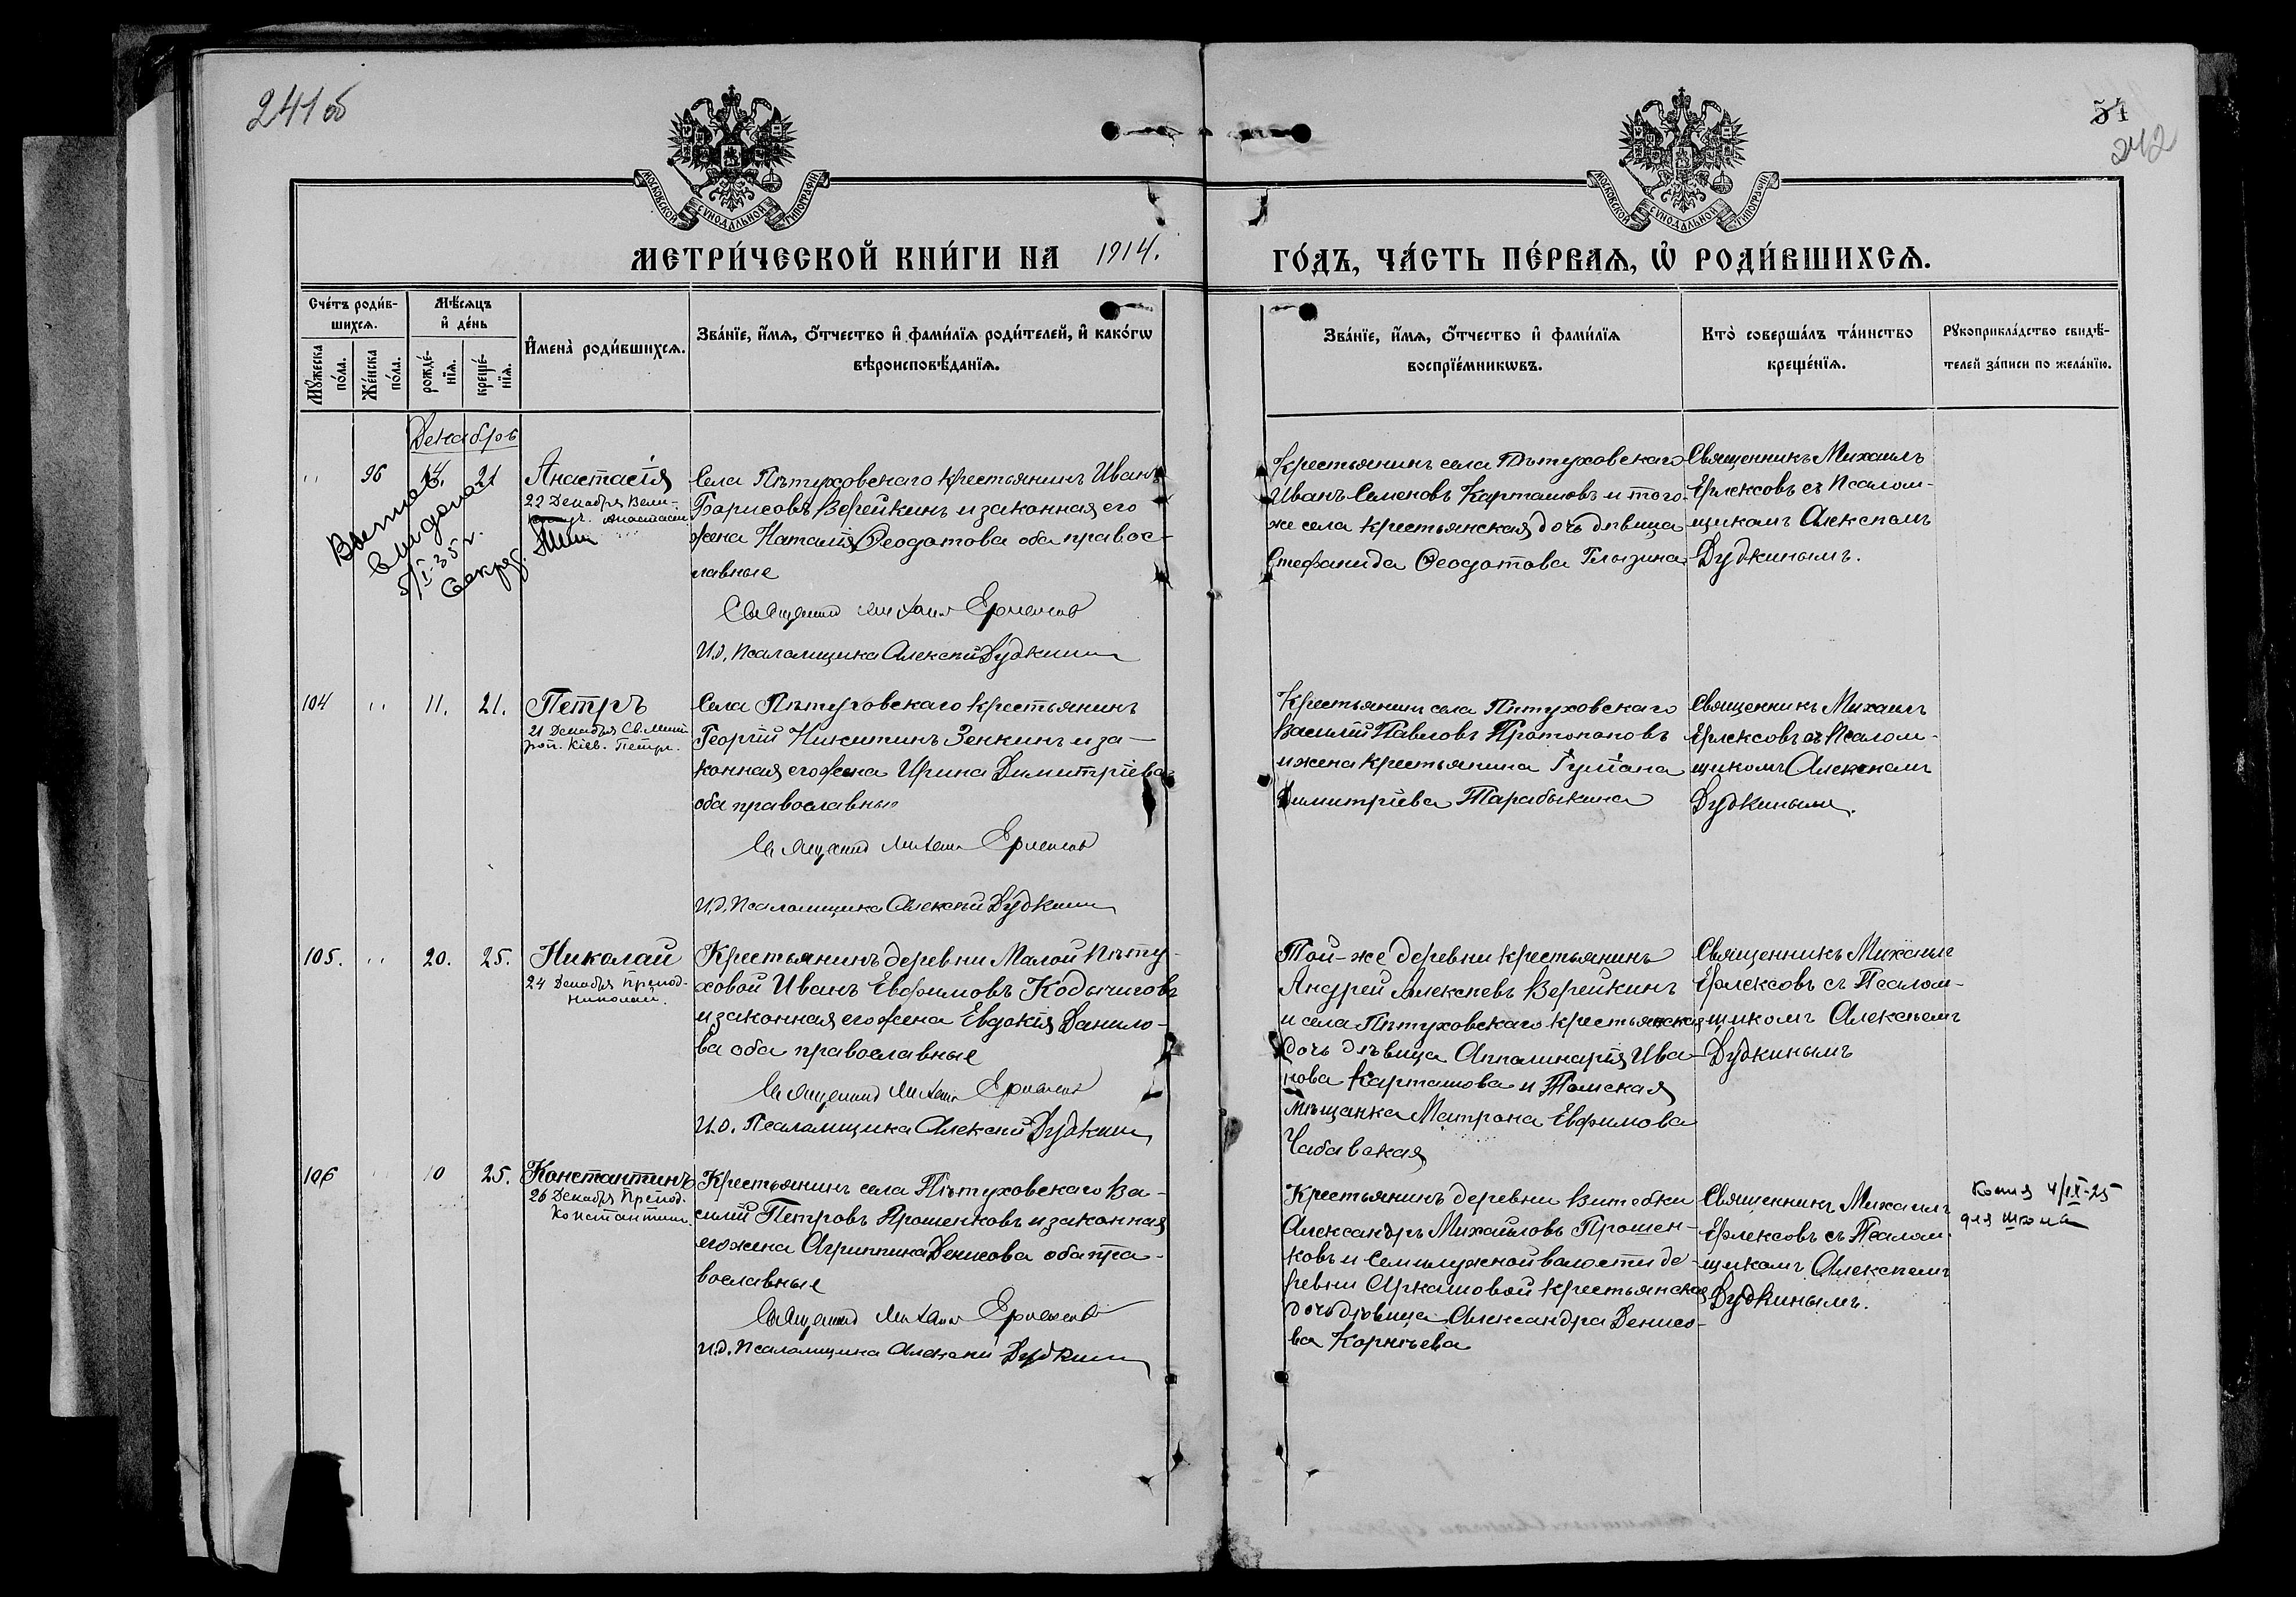 241 об
51
242
МОСКОВСКОЙ СУНОДАЛЬНОЙ ТИПОГРАФІИ
МОСКОВСКОЙ СУНОДАЛЬНОЙ ТИПОГРАФІИ
МЕТРИ́ЧЕСКОЙ КНИ́ГИ НА 1914. ГО́ДЪ, ЧА́СТЬ ПЕ́РВАЯ, Ѡ҆ РОДИ́ВШИХСЯ.
Сче́тъ роди́в-
шихся.
Мѣ́сяцъ
и҆ де́нь
Мꙋ́жеска
по́ла.
Же́нска
по́ла.
рожде́-
нїя.
креще́-
нїя.
И҆мена̀ роди́вшихся.
Зва́нїе, и҆́мя, ѻ҆́тчество и҆ фами́лїя роди́телей, и҆ како́гѡ
вѣроисповѣ́данїя.
Зва́нїе, и҆́мя, ѻ҆́тчество и҆ фами́лїя
воспрїе́мникѡвъ.
Кто̀ соверша́лъ та́инство
креще́нїя.
Рꙋкоприкла́дство свидѣ́-
телей за́писи по жела́нїю.
Декабрь
96 14. 21
Анастасія
22 Декабря Вели-
Анастасіи
5/I-35 г.
Секрет.
Села Пѣтуховскаго крестьянинъ Иванъ
Борисовъ Верейкинъ и законная его
жена Наталія Ѳеодотова оба правос-
лавные
Священникъ Михаилъ Ерлексовъ
И.д. Псаломщика Алексѣй Дудкинъ
Крестьянинъ села Пѣтуховскаго
Иванъ Семеновъ Карташовъ и того-
же села крестьянская дочь дѣвица
Стефанида Ѳеодотова Глызина
Священникъ Михаилъ
Ерлексовъ съ Псалом-
щикомъ Алексѣемъ
Дудкинымъ.
104 11. 21.
Петръ
21 Декабря Св. Мит-
роп. Кіев. Петра.
Села Пѣтуховскаго крестьянинъ
Георгій Никитинъ Зенкинъ и за-
конная его жена Ирина Димитріева
оба православные
Священникъ Михаилъ Ерлексовъ
И.д. Псаломщика Алексѣй Дудкинъ
Крестьянинъ села Пѣтуховскаго
Василій Павловъ Протопоповъ
и жена крестьянина Гуліана
Димитріева Тарабыкина
Священникъ Михаилъ
Ерлексовъ съ Псалом-
щикомъ Алексѣемъ
Дудкинымъ.
105. 20. 25.
Николай
24 Декабря Препод.
Николая.
Крестьянинъ деревни Малой Пѣту-
ховой Иванъ Евфимовъ Кодычиговъ
и законная его жена Евдокія Данило-
ва оба православные
Священникъ Михаилъ Ерлексовъ
И.д. Псаломщика Алексѣй Дудкинъ
Той-же деревни крестьянинъ
Андрей Алексѣевъ Верейкинъ
и села Пѣтуховскаго крестьянская
дочь дѣвица Апполинарія Ива-
нова Карташова и Томская
мѣщанка Матрона Евфимова
Священникъ Михаилъ
Ерлексовъ съ Псалом-
щикомъ Алексѣемъ
Дудкинымъ
106 10 25.
Константинъ
26 Декабря Препод.
Константина.
Крестьянинъ села Пѣтуховскаго Ва-
силій Петровъ Прошенковъ и законная
его жена Агриппина Денисова оба пра-
вославные
Священникъ Михаилъ Ерлексовъ
И.д. Псаломщика Алексѣй Дудкинъ
Крестьянинъ деревни Витебки
Александръ Михайловъ Прошен-
ковъ и Семилужной волости де-
ревни Аркашовой крестьянская
дочь дѣвица Александра Денисо-
ва Корнѣева
Священникъ Михаилъ
Ерлексовъ съ Псалом-
щикомъ Алексѣемъ
Дудкинымъ.
Копия 4/IX-25
для школы